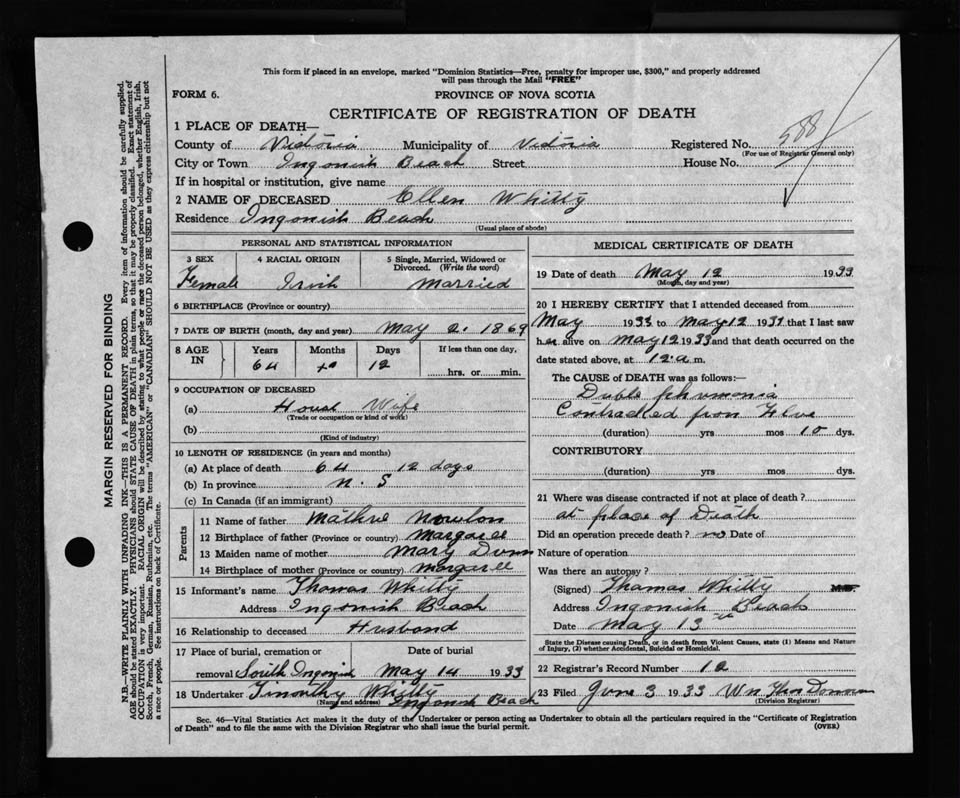 This form if placed in an envelope, marked "Dominion Statistics—Free, penalty for improper use, $300," and properly addressed
will pass through the Mail "FREE"
FORM 6.
PROVINCE OF NOVA SCOTIA
CERTIFICATE OF REGISTRATION OF DEATH
1 PLACE OF DEATH—
County of Victoria Municipality of Victoria Registered No. 588
(For use of Registrar General only)
City or Town Ingonish Beach Street House No.
If in hospital or institution, give name
2 NAME OF DECEASED Ellen Whitty
Residence Ingonish Beach
(Usual place of abode)
PERSONAL AND STATISTICAL INFORMATION
3 SEX 4 RACIAL ORIGIN 5 Single, Married, Widowed or
Divorced. (Write the word)
Female Irish Married
6 BIRTHPLACE (Province or country)
7 DATE OF BIRTH (month, day and year) May 2. 1869
8 AGE IN Years Months Days If less than one day,
64 12 hrs. or min.
9 OCCUPATION OF DECEASED
(a) House Wife
(Trade or occupation or kind of work)
(b)
(Kind of industry)
10 LENGTH OF RESIDENCE (in years and months)
(a) At place of death 64 12 days
(b) In province N. S
(c) In Canada (if an immigrant)
Parents
11 Name of father Mathre
12 Birthplace of father (Province or country) Margaree
13 Maiden name of mother Mary Dunn
14 Birthplace of mother (Province or country) Margaree
15 Informant's name Thomas Whitty
Address Ingonish Beach
16 Relationship to deceased Husband
17 Place of burial, cremation or Date of burial
removal South Ingonish May 14 1933
18 Undertaker Timothy Whitty
(Name and address) Ingonish Beach
MEDICAL CERTIFICATE OF DEATH
19 Date of death May 12 1933
(Month, day and year)
20 I HEREBY CERTIFY that I attended deceased from
May 1933 to May 12 1937 that I last saw
her alive on May 12 1933 and that death occurred on the
date stated above, at 12 a m.
The CAUSE of DEATH was as follows:—
Duble phumonia
Contracted from Flue
(duration) yrs mos 10 dys.
CONTRIBUTORY
(duration) yrs mos dys.
21 Where was disease contracted if not at place of death?
at place of Death
Did an operation precede death? no Date of
Nature of operation
Was there an autopsy?
(Signed) Thomas Whitty
Address Ingonish Beach
Date May 13th
State the Disease causing Death, or in death from Violent Causes, state (1) Means and Nature
of Injury, (2) whether Accidental, Suicidal or Homicidal.
22 Registrar's Record Number 12
23 Filed June 3 1933 Wm Thos
(Division Registrar)
Sec. 46—Vital Statistics Act makes it the duty of the Undertaker or person acting as Undertaker to obtain all the particulars required in the "Certificate of Registration
of Death" and to file the same with the Division Registrar who shall issue the burial permit. (OVER)
MARGIN RESERVED FOR BINDING
N.B.—WRITE PLAINLY WITH UNFADING INK—THIS IS A PERMANENT RECORD. Every item of information should be carefully supplied.
AGE should be stated EXACTLY. PHYSICIANS should STATE CAUSE OF DEATH in plain terms, so that it may be properly classified. Exact statement of
OCCUPATION is very important. RACIAL ORIGIN will be described by stating to what people or race the deceased person belonged, whether English, Irish,
Scotch, French, German, Russian, Ruthenian, etc. The terms "AMERICAN" or "CANADIAN" SHOULD NOT BE USED as they express citizenship but not
a race or people. See instructions on back of Certificate.